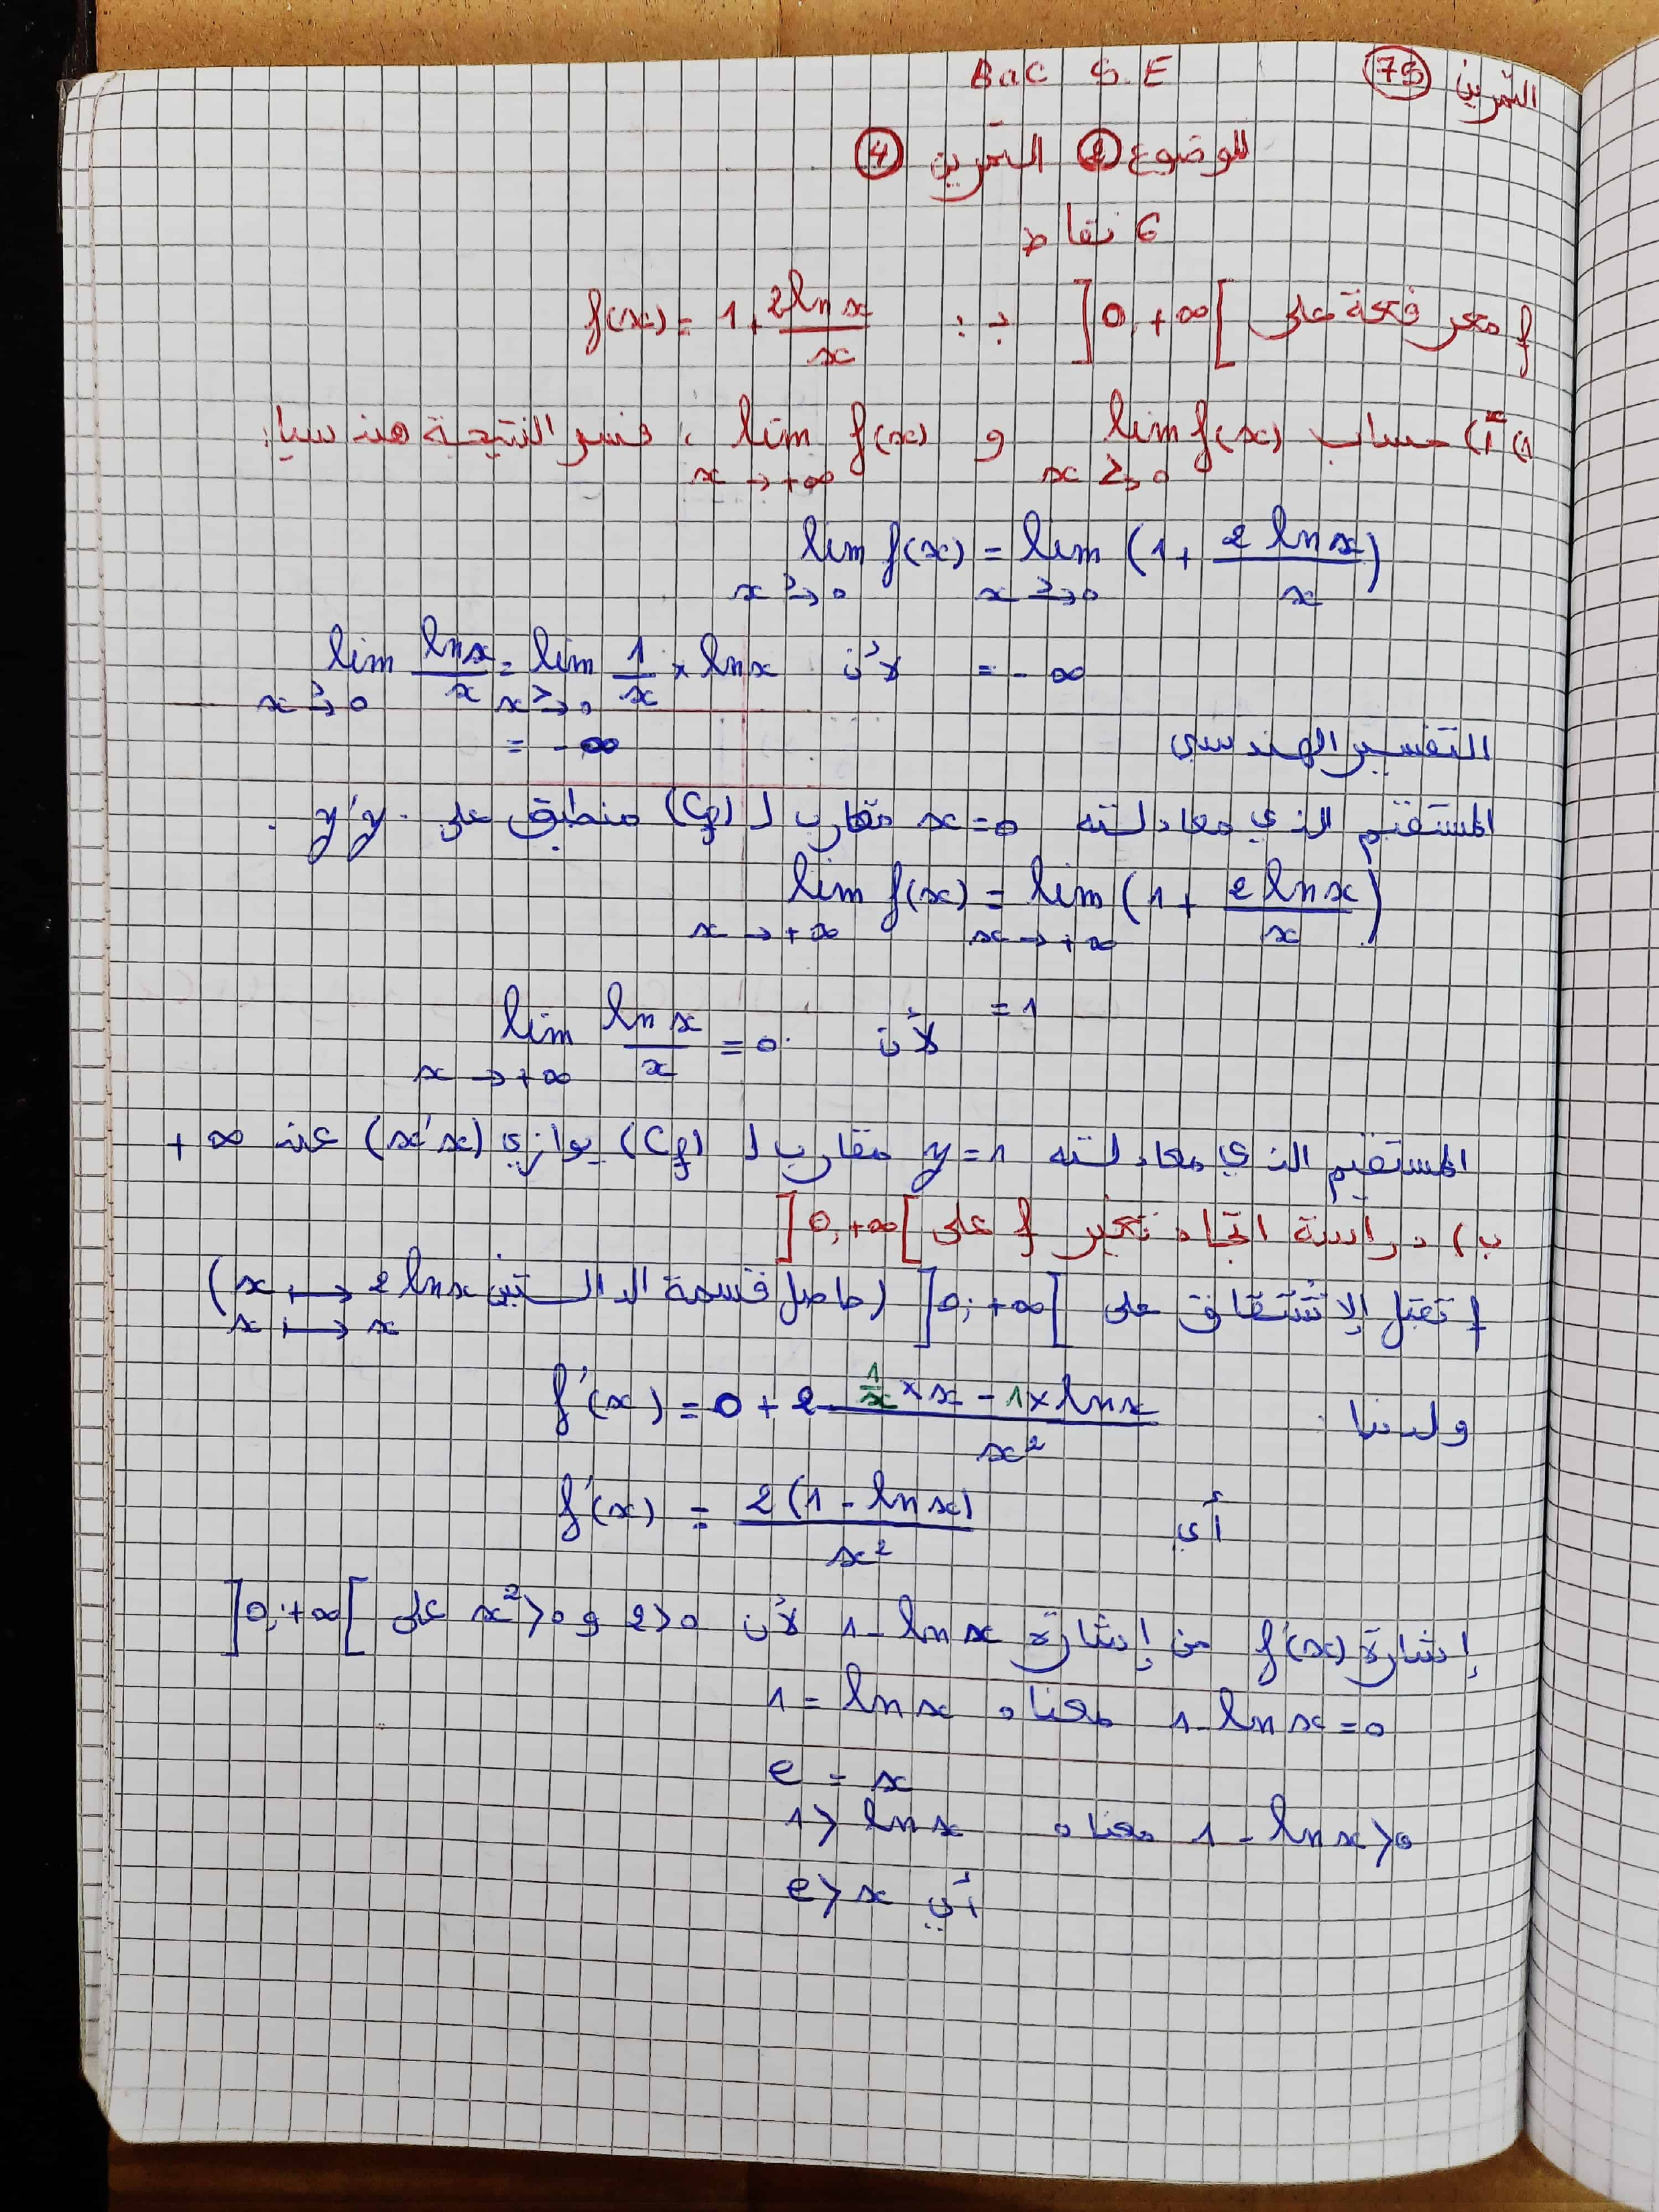 التمرين 75 Bac S.E
الموضوع 2 التمرين 4
6 نقاط
f معرفة على ]0,+∞[ بـ: f(x) = 1 + 2lnx/x
1) أ) حساب lim f(x) x→>0 و lim f(x) x→+∞ ، فسر النتيجة هندسيا:
lim f(x) x→>0 = lim x→>0 (1 + 2 lnx/x)
= -∞ لأن lim x→>0 lnx/x = lim x→>0 1/x × lnx
= -∞
التفسير الهندسي
المستقيم الذي معادلته x=0 مقارب لـ (Cf) منطبق على y'y.
lim f(x) x→+∞ = lim x→+∞ (1 + 2lnx/x)
= 1
لأن lim x→+∞ lnx/x = 0.
المستقيم الذي معادلته y=1 مقارب لـ (Cf) يوازي (x'x) عند +∞
ب) دراسة اتجاه تغير f على ]0,+∞[
f تقبل الإشتقاق على ]0;+∞[ (حاصل قسمة الدالتين x ↦ 2lnx
x ↦ x)
ولدينا: f'(x) = 0 + 2 (1/x × x - 1 × lnx)/x²
أي f'(x) = 2(1 - lnx)/x²
إشارة f'(x) من إشارة 1-lnx لأن 2>0 و x²>0 على ]0;+∞[
1-lnx=0 معناه 1 = lnx
e = x
1 - lnx>0 معناه 1> lnx
أي e>x